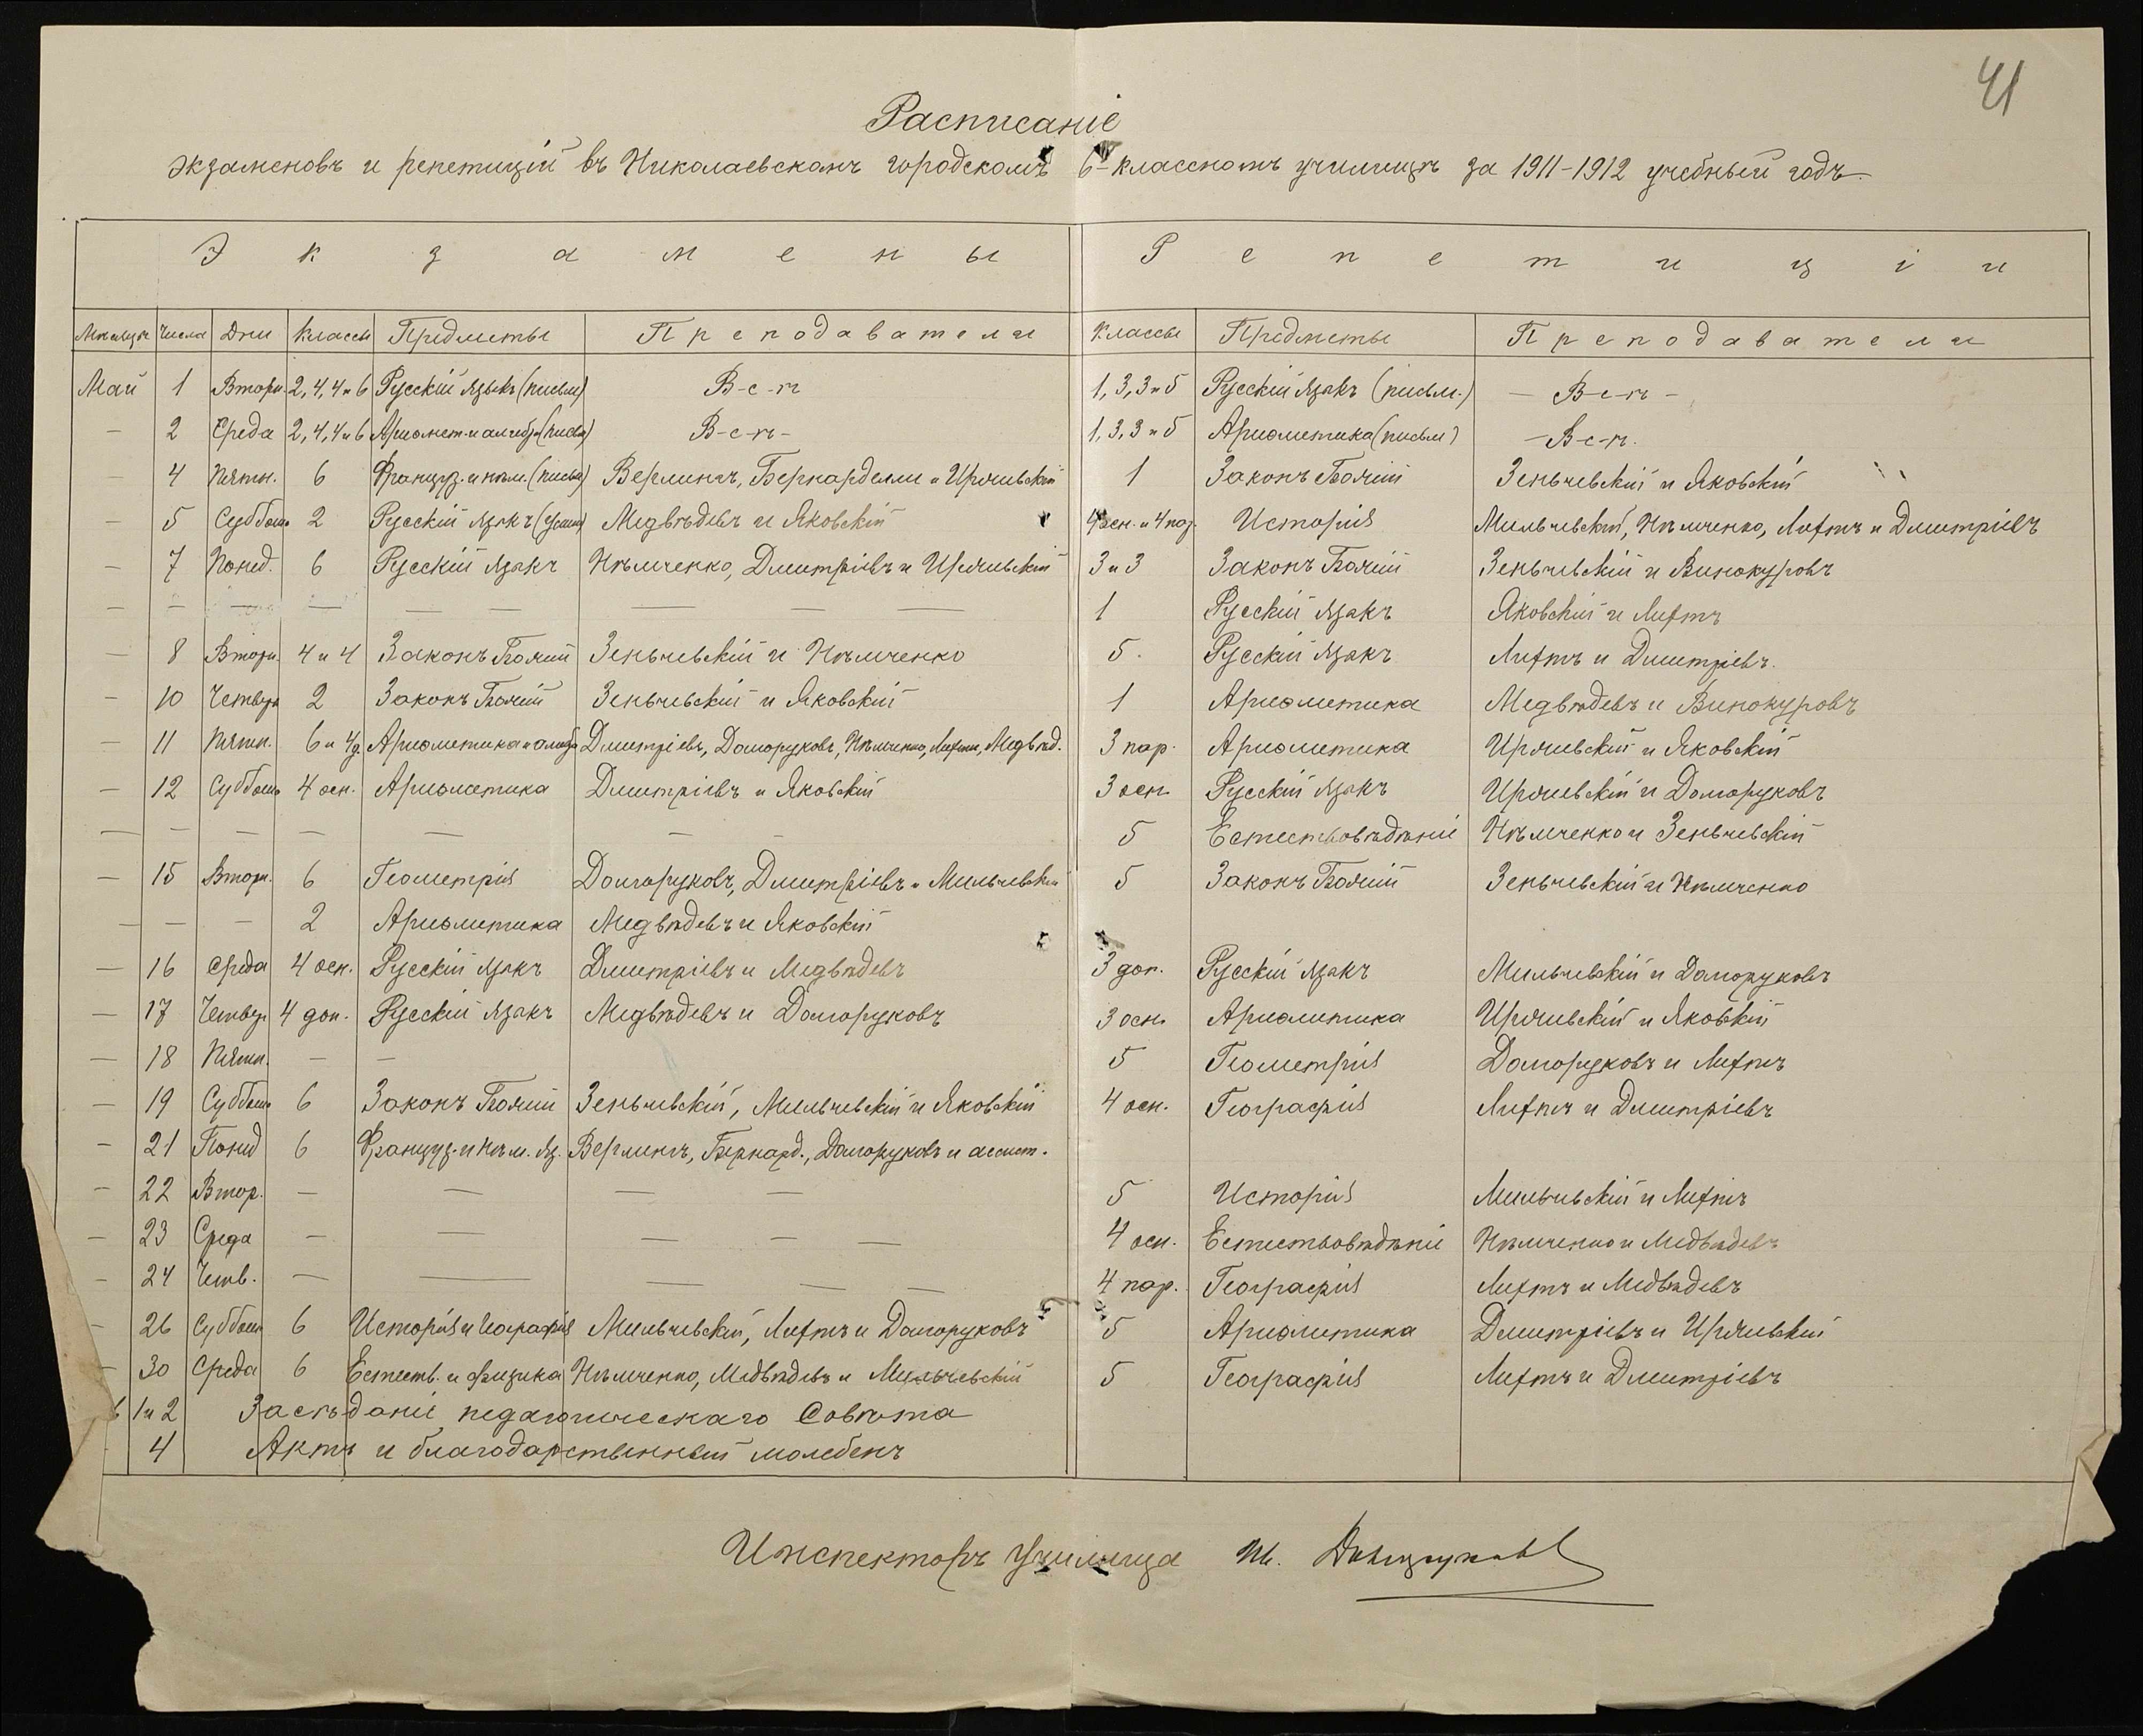 41
Расписаніе
экзаменовъ и репетицій въ Николаевскомъ городскомъ 6-классномъ училищѣ за 1911-1912 учебный годъ.
Экзамены Репетиціи
Мѣсяцъ Числа Дни Классы Предметы Преподаватели Классы Предметы Преподаватели
Май 1 Вторн. 2, 4, 4 и 6 Русскій языкъ (письм) В-с-ѣ 1, 3, 3 и 5 Русскій языкъ (письм.) — В-с-ѣ -
— 2 Среда 2, 4, 4 и 6 Ариѳмет. и алгебр. (письм) В-с-ѣ- 1, 3, 3 и 5 Ариѳметика (письм) -В-с-ѣ.
— 4 Пятн. 6 Француз. и нѣм. (письм) Верлингъ, Бернарделли и Иржиевскій 1 Законъ Божій Зеньчевскій и Яковскій
— 5 Суббот. 2 Русскій языкъ (устн) Медвѣдевъ и Яковскій 4 осн. и 4 пар. Исторія Мильчевскій, Нѣмченко, Лифтъ и Дмитріевъ
— 7 Понед. 6 Русскій языкъ Нѣмченко, Дмитріевъ и Иржиевскій 3 и 3 Законъ Божій Зеньчевскій и Винокуровъ
— — — — — — — — — 1 Русскій языкъ Яковскій и Лифтъ
— 8 Вторн. 4 и 4 Законъ Божій Зеньчевскій и Нѣмченко 5. Русскій языкъ Лифтъ и Дмитріевъ.
— 10 Четверг 2 Законъ Божій Зеньчевскій и Яковскій 1 Ариѳметика Медвѣдевъ и Винокуровъ
— 11 Пятн. 6 и 4 д. Ариѳметика и алгебр Дмитріевъ, Долгоруковъ, Нѣмченко, Лифтъ, Медвѣд. 3 пар. Ариѳметика Иржиевскій и Яковскій
— 12 Суббот. 4 осн. Ариѳметика Дмитріевъ и Яковскій 3 осн. Русскій языкъ Иржиевскій и Долгоруковъ
— — — — — — — 5 Естествовѣдѣніе Нѣмченко и Зеньчевскій
— 15 Вторн. 6 Геометрія Долгоруковъ, Дмитріевъ и Мильчевскій 5 Законъ Божій Зеньчевскій и Нѣмченко
— — — 2 Ариѳметика Медвѣдевъ и Яковскій
— 16 Среда 4 осн. Русскій языкъ Дмитріевъ и Медвѣдевъ 3 доп. Русскій языкъ Мильчевскій и Долгоруковъ
— 17 Четверг 4 доп. Русскій языкъ Медвѣдевъ и Долгоруковъ 3 осн. Ариѳметика Иржиевскій и Яковскій
— 18 Пятн. — — 5 Геометрія Долгоруковъ и Лифтъ
— 19 Суббот. 6 Законъ Божій Зеньчевскій, Мильчевскій и Яковскій 4 осн. Географія Лифтъ и Дмитріевъ
— 21 Понед 6 Француз. и нѣм. яз. Верлингъ, Бернард., Долгоруковъ и ассист.
— 22 Втор. — — — — 5 Исторія Мильчевскій и Лифтъ
— 23 Среда — — — — — 4 осн. Естествовѣдѣніе Нѣмченко и Медвѣдевъ
— 24 Четв. — — — — — 4 пар. Географія Лифтъ и Медвѣдевъ
— 26 Суббот 6 Исторія и географія Мильчевскій, Лифтъ и Долгоруковъ 5 Ариѳметика Дмитріевъ и Иржиевскій
— 30 Среда 6 Естеств. и физика Нѣмченко, Медвѣдевъ и Мильчевскій 5 Географія Лифтъ и Дмитріевъ
1 и 2 Засѣданіе педагогическаго Совѣта
4 Актъ и благодарственный молебенъ
Инспекторъ Училища Ив. Долгоруковъ